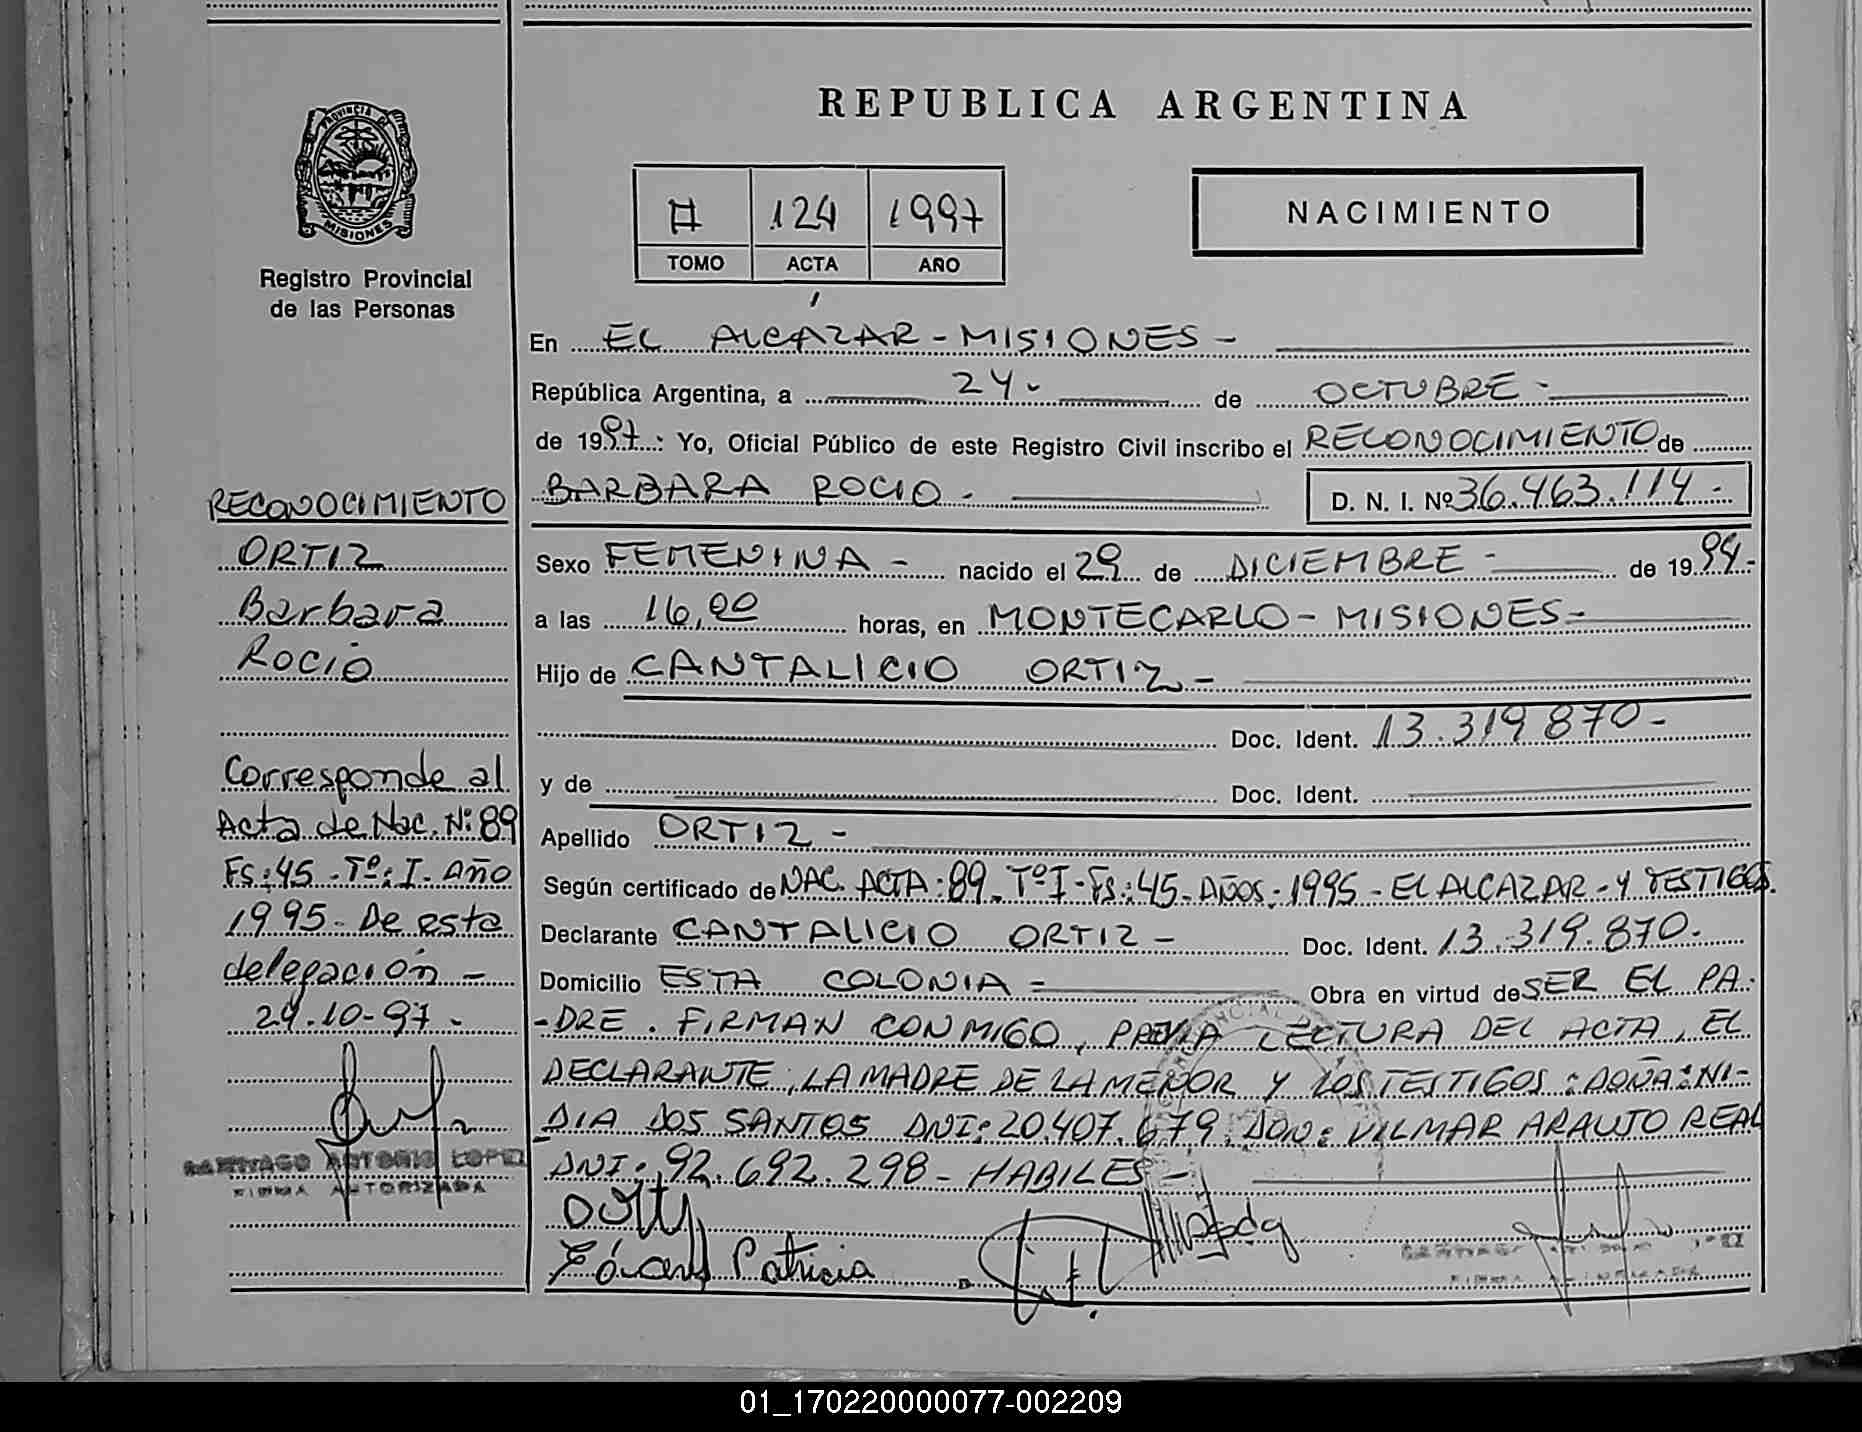 REPUBLICA ARGENTINA
PROVINCIA DE
MISIONES
Registro Provincial
de las Personas
124 1997
TOMO ACTA AÑO
NACIMIENTO
En EL ALCAZAR - MISIONES -
República Argentina, a 24- de OCTUBRE -
de 1997: Yo, Oficial Público de este Registro Civil inscribo el RECONOCIMIENTO de
BARBARA ROCIO - D. N. I. Nº 36.463.114 -
Sexo FEMENINA - nacido el 29 de DICIEMBRE - de 1994-
a las 16,00 horas, en MONTECARLO - MISIONES -
Hijo de CANTALICIO ORTIZ -
Doc. Ident. 13.319870-
y de Doc. Ident.
Apellido ORTIZ -
Según certificado de NAC. ACTA: 89. Tº I - Fs: 45 - AÑOS - 1995 - EL ALCAZAR - Y TESTIGOS.
Declarante CANTALICIO ORTIZ - Doc. Ident. 13.319.870.
Domicilio ESTA COLONIA - Obra en virtud de SER EL PA-
-DRE. FIRMAN CONMIGO, PREVIA LECTURA DEL ACTA, EL
DECLARANTE, LA MADRE DE LA MENOR Y LOS TESTIGOS: DOÑA: NI-
DIA DOS SANTOS DNI: 20.407.679. DON: VILMAR ARAUJO REAL
DNI: 92.692.298 - HABILES -
Patricia
RECONOCIMIENTO
ORTIZ
Barbara
ROCIO
Corresponde al
Acta de Nac. Nº: 89
Fs: 45 - Tº: I - Año
1995 - De esta
delegación -
24-10-97 -
SANTIAGO ANTONIO LOPEZ
FIRMA AUTORIZADA
01_170220000077-002209